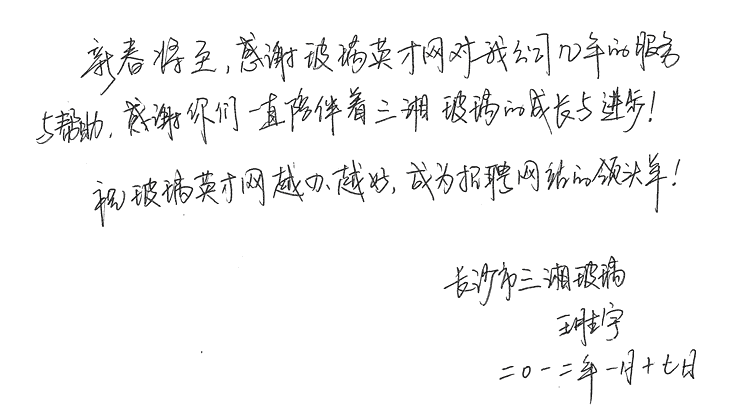 新春将至,感谢玻璃英才网对我公司几年的服务
与帮助,感谢你们一直陪伴着三湘玻璃的成长与进步!
祝玻璃英才网越办越好,成为招聘网站的领头羊!
长沙市三湘玻璃
王胜宇
二0一二年一月十七日